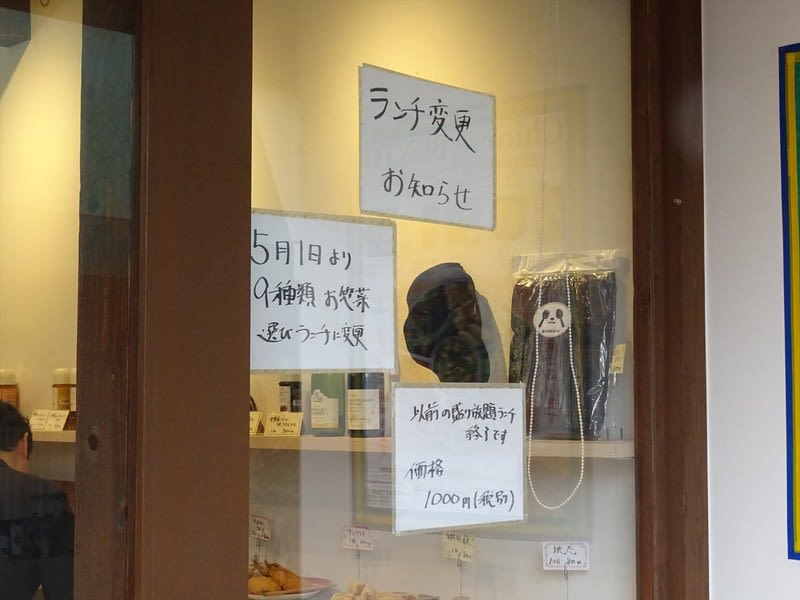 ランチ変更
お知らせ
5月1日より
9種類 お惣菜
選びランチに変更
以前の盛り放題ランチ
終了です
価格
1000円(税別)